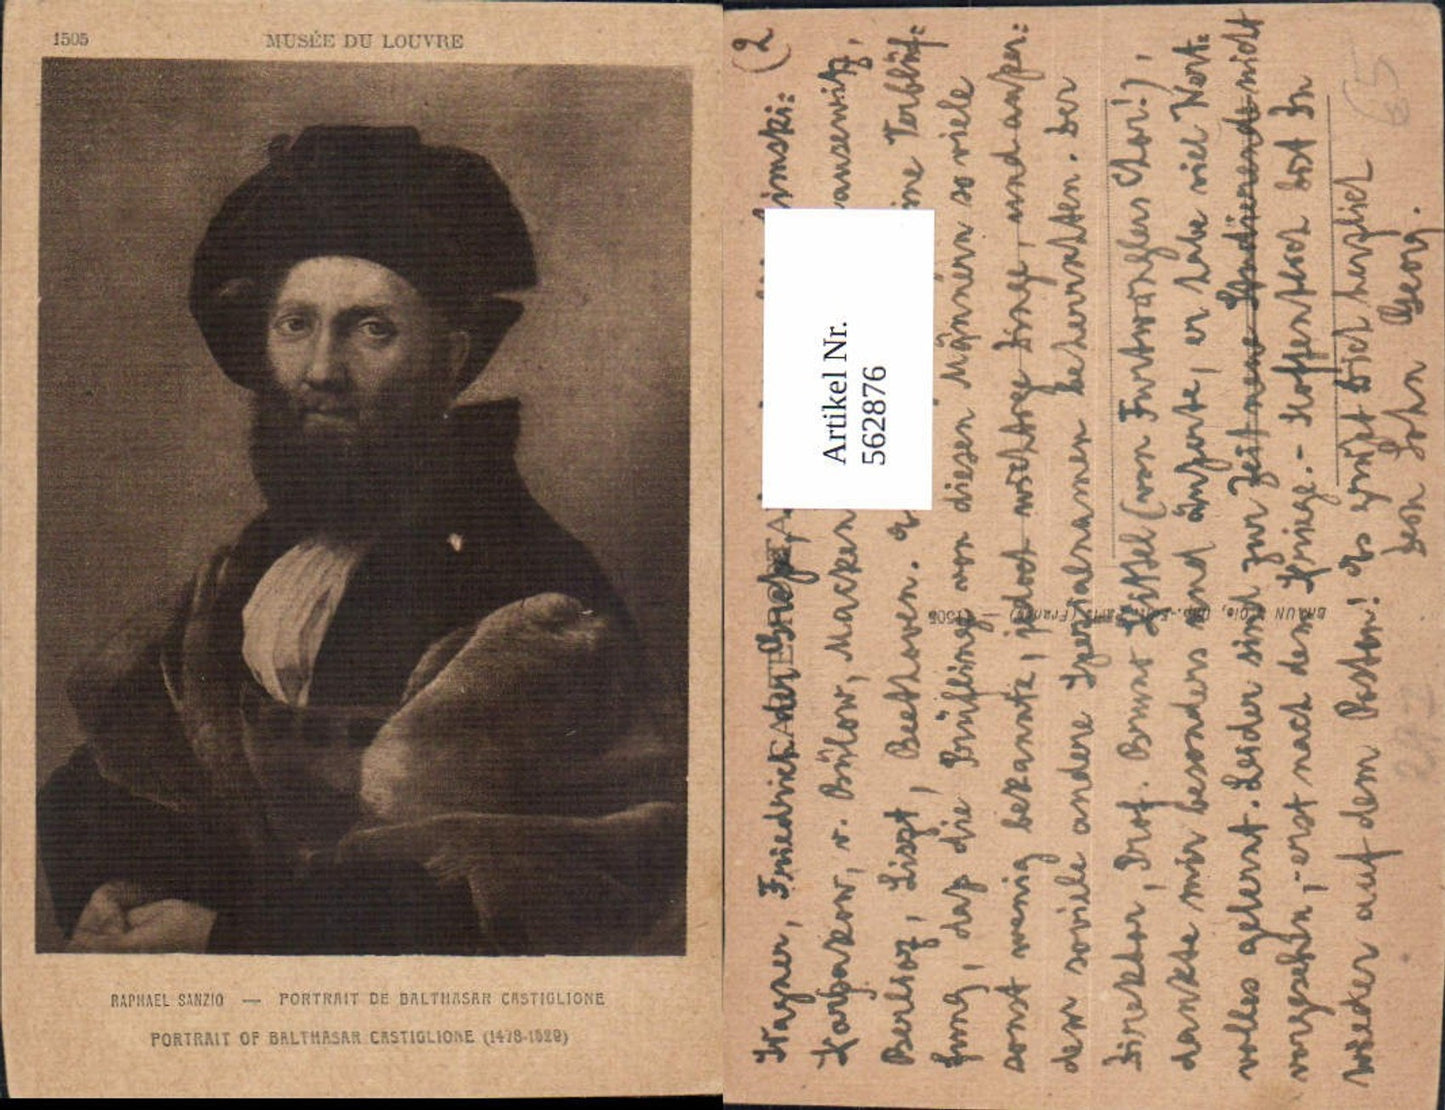 1505
MUSÉE DU LOUVRE
RAPHAEL SANZIO — PORTRAIT DE BALTHASAR CASTIGLIONE
PORTRAIT OF BALTHASAR CASTIGLIONE (1478-1529)
(2
Wagner, Friedrich der Große,
v. Bülow, Macken
Berlioz, Liszt, Beethoven. eine Verblüf=
fung, daß die Prüflinge von diesen Männern so viele
sonst wenig bekannte, jedoch wichtige Dinge, und außer=
dem soviele andere Spezialnamen beherrschten. Der
Direktor, Prof. Bruno Kittel (von Furtwänglers Chor!),
dankte mir besonders und äußerte, er habe viel Wert=
volles gelernt. Leider sind zur Zeit neue Studierende nicht
vorgesehen, - erst nach dem Kriege. - Hoffentlich bist Du
wieder auf dem Posten! Es grüßt Dich herzlich
Dein Sohn Georg.
Artikel Nr.
562876
BRAUN & Cie, Imp.-Edit. Paris (France) — 1505